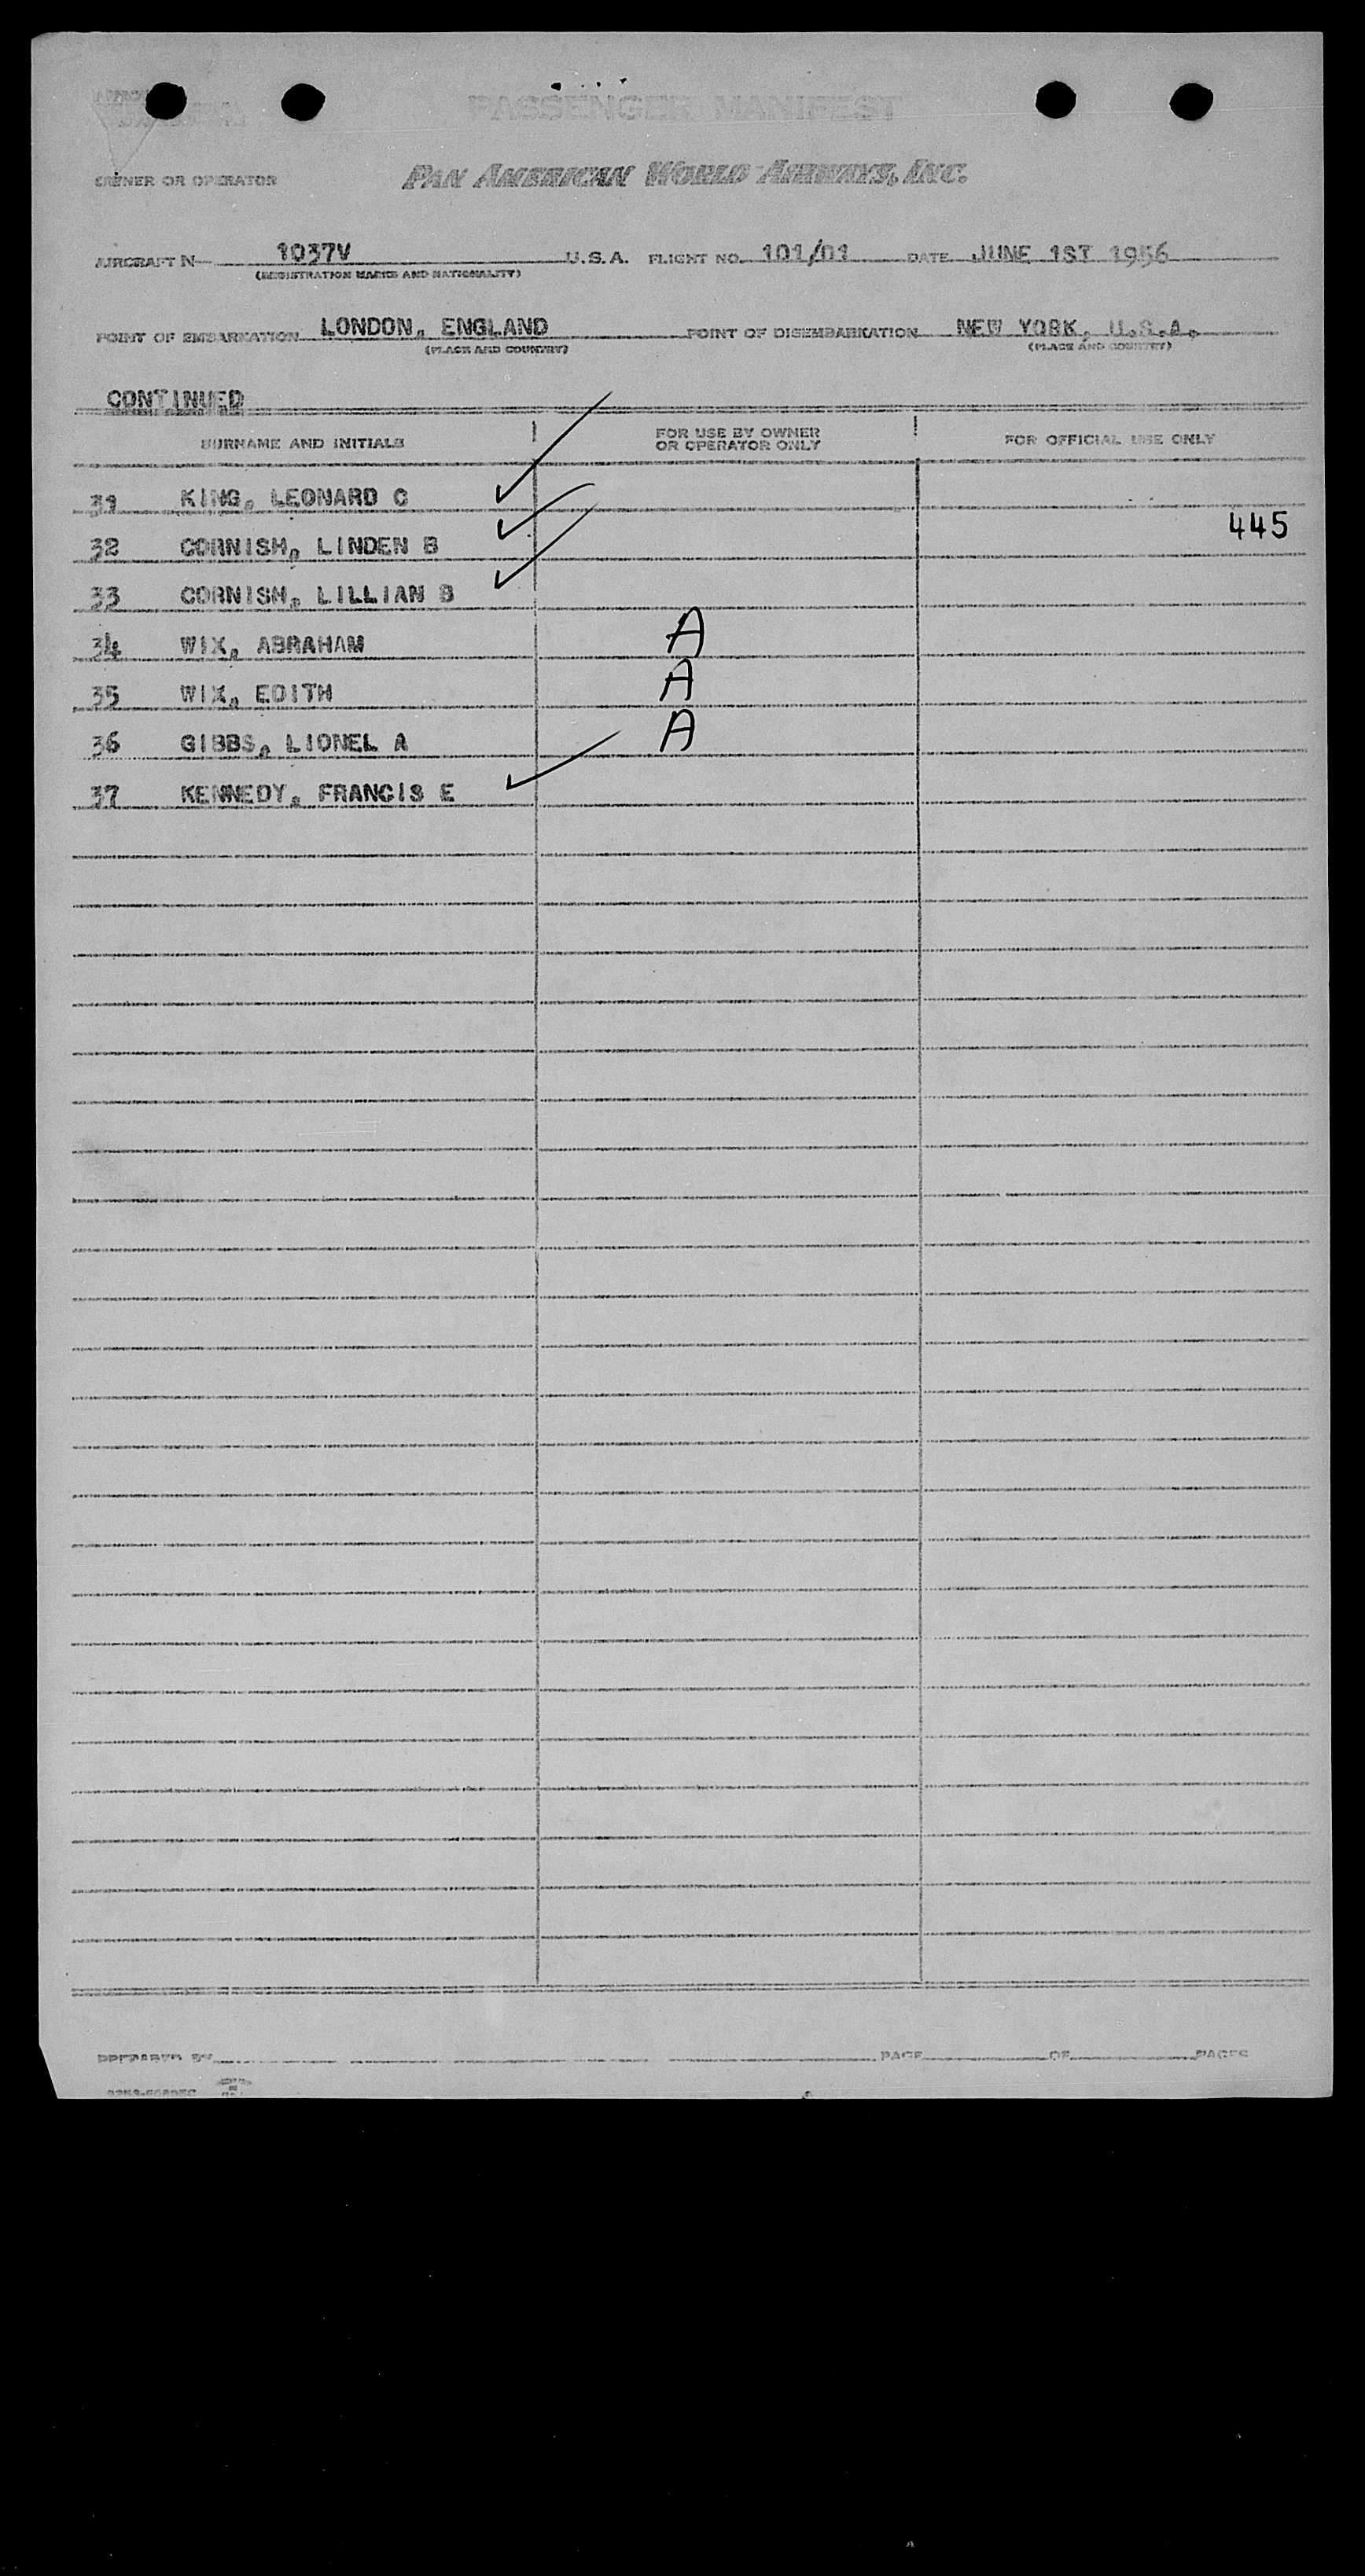 PASSENGER MANIFEST
OWNER OR OPERATOR PAN AMERICAN WORLD AIRWAYS, INC.
AIRCRAFT N 1037V U.S.A. FLIGHT NO. 101/01 DATE JUNE 1ST 1956
(REGISTRATION MARKS AND NATIONALITY)
POINT OF EMBARKATION LONDON, ENGLAND POINT OF DISEMBARKATION NEW YORK, U.S.A.
(PLACE AND COUNTRY) (PLACE AND COUNTRY)
CONTINUED
SURNAME AND INITIALS FOR USE BY OWNER OR OPERATOR ONLY FOR OFFICIAL USE ONLY
31 KING, LEONARD C
445
32 CORNISH, LINDEN B
33 CORNISH, LILLIAN B
34 WIX, ABRAHAM A
35 WIX, EDITH A
36 GIBBS, LIONEL A A
37 KENNEDY, FRANCIS E
PREPARED BY PAGE OF PAGES